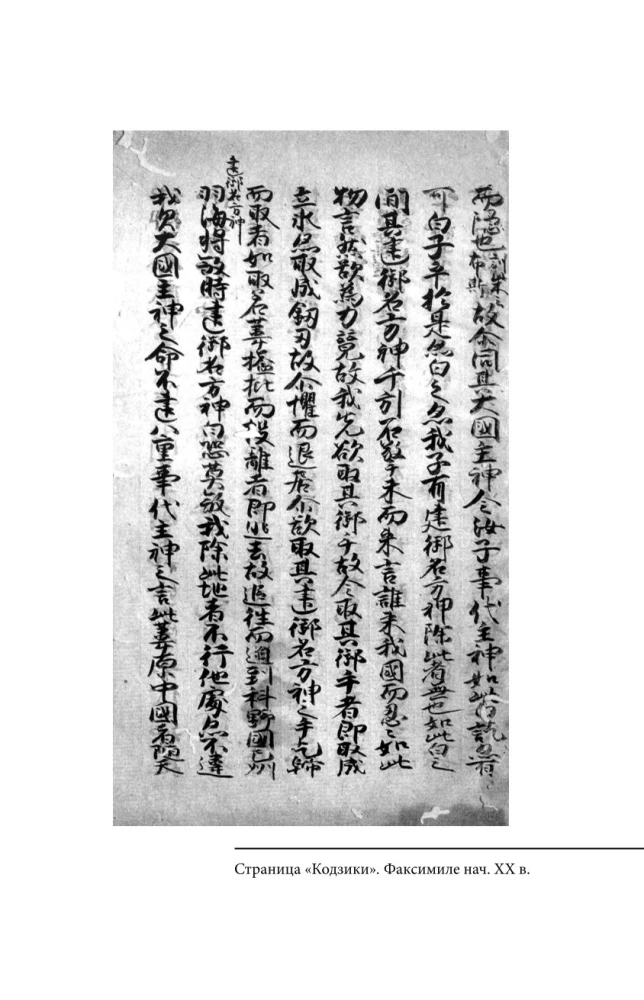 而隠也訓柴云布斯故尒問其大國主神今汝子事代主神如此白訖亦有
可白子乎於是亦白之亦我子有建御名方神除此者無也如此白之
間其建御名方神千引石擎手末而来言誰来我國而忍〻如此
物言然欲為力競故我先欲取其御手故令取其御手者即取成
立氷亦取成釼刃故尒懼而退居尒欲取其建御名方神之手乞歸
而取者如取若葦搤批而投離者即逃去故追往而迫到科野國之州
建御名方神
羽海将殺時建御名方神白恐莫殺我除此地者不行他處亦不違
我父大國主神之命不違八重事代主神之言此葦原中國者随天
Страница «Кодзики». Факсимиле нач. XX в.